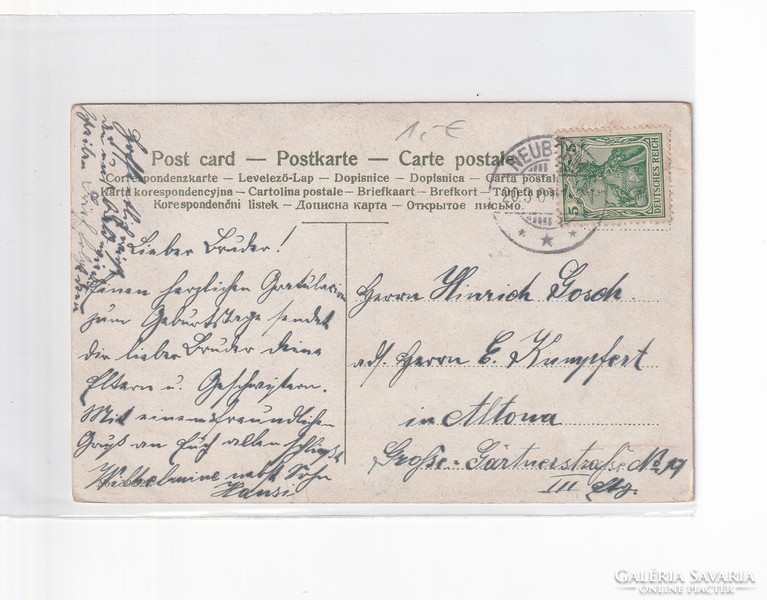 1,- €
Post card — Postkarte — Carte postale
Correspondenzkarte – Levelező-Lap – Dopisnice – Dopisnica – Carta postal
Karta korespondencyjna – Cartolina postale – Briefkaart – Brefkort – Tarjeta
Korespondenční listek – Дописна карта – Открытое письмо.
NEUB
5
5
DEUTSCHES REICH
Lieber Bruder!
Einen herzlichen Gratulation
zum Geburtstage sendet
dir lieber Bruder deine
Eltern u. Geschwistern.
Mit einem freundlichen
Gruß an Euch allen schließt
Wilhelmine nebst Sohn
Hansi
Herrn Hinrich Gosch.
adr. Herrn E. Kumpfert
in Altona
Große-Gärtnerstraße No 19
III Etg.
GALÉRIA SAVARIA
ONLINE PIACTÉR